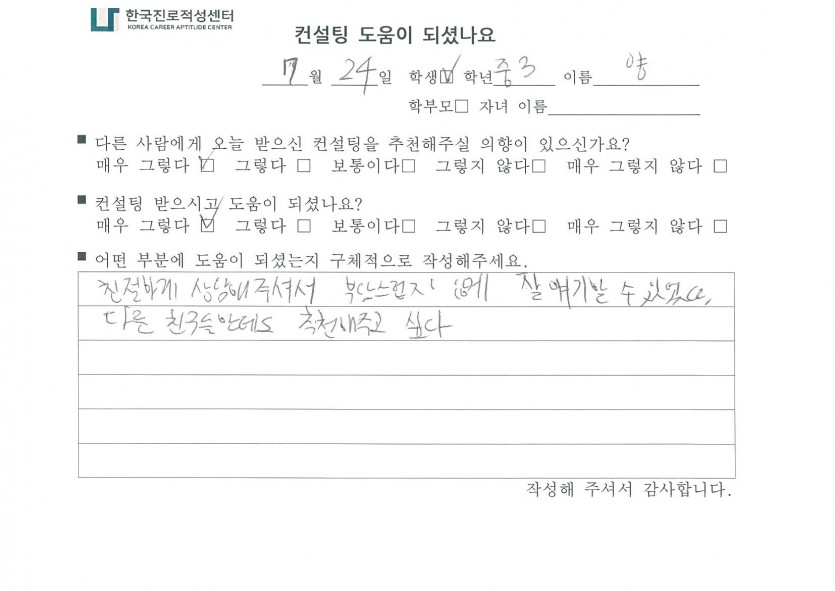 한국진로적성센터
KOREA CAREER APTITUDE CENTER
컨설팅 도움이 되셨나요
7월 24일 학생☑ 학년 중3 이름 양
학부모□ 자녀 이름
■ 다른 사람에게 오늘 받으신 컨설팅을 추천해주실 의향이 있으신가요?
매우 그렇다 ☑ 그렇다 □ 보통이다□ 그렇지 않다□ 매우 그렇지 않다 □
■ 컨설팅 받으시고 도움이 되셨나요?
매우 그렇다 ☑ 그렇다 □ 보통이다□ 그렇지 않다□ 매우 그렇지 않다 □
■ 어떤 부분에 도움이 되셨는지 구체적으로 작성해주세요.
친절하게 상담해주셔서 부담스럽지 않게 잘 얘기할 수 있었다.
다른 친구들한테도 추천해주고 싶다
작성해 주셔서 감사합니다.